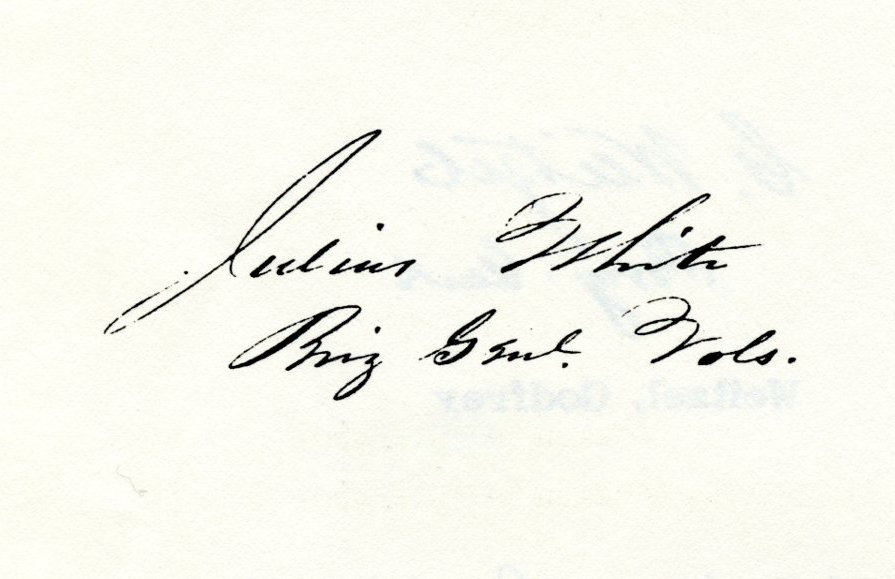 Julius White
Brig Genl. Vols.
G. Weitzel
Weitzel, Godfrey